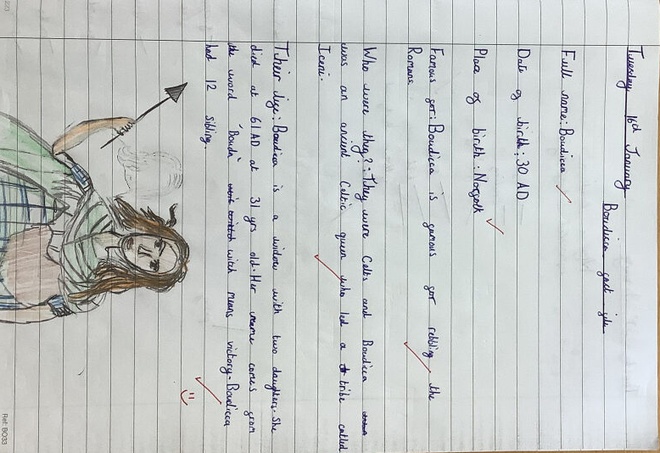 Tuesday 16th January
Boudicca fact file
Full name: Boudicca
Date of birth: 30 AD
Place of birth: Norfolk
Famous for: Boudicca is famous for rebling the
Romans
Who were they?: They were Celts and Boudicca
was an ancient Celtic queen who led a tribe called
Iceni.
Their life: Boudicca is a widow with two daughters. She
died at 61 AD at 31 yrs old. Her name comes from
the word 'Bouda' witch means victory. Boudicca
had 12 sibling.
Ref: BO33